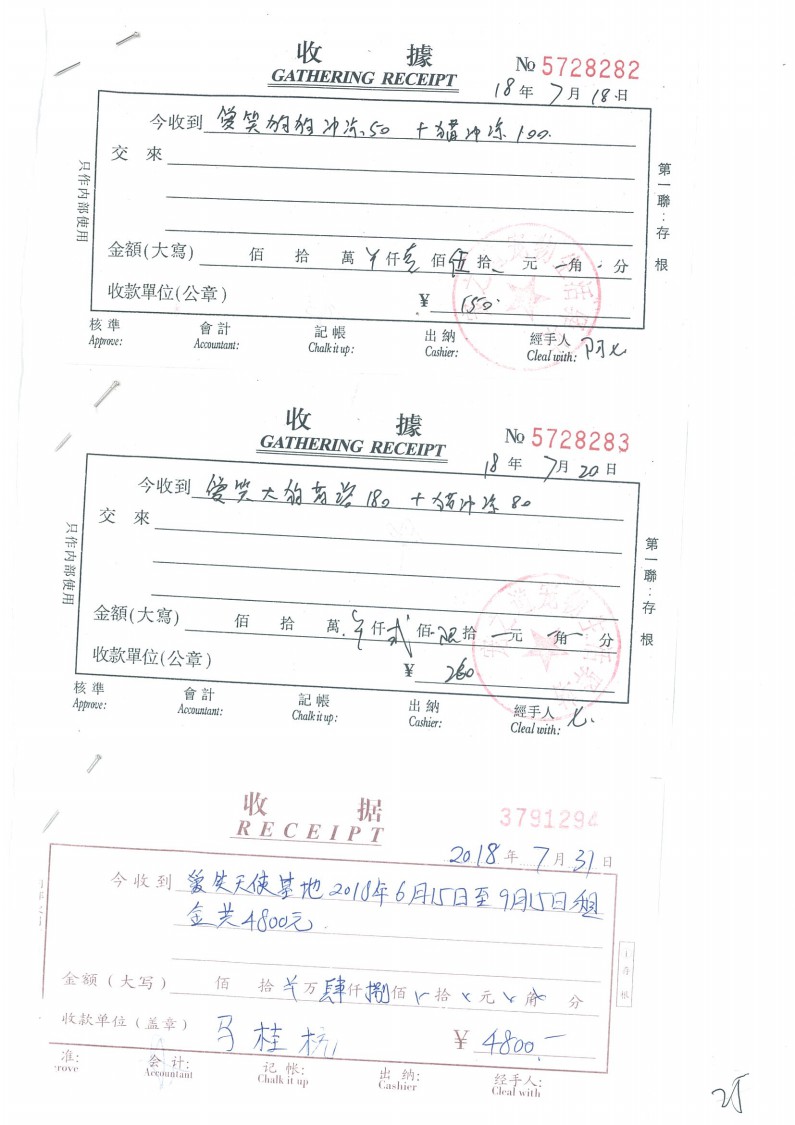 收 據
GATHERING RECEIPT
№ 5728282
18 年 7 月 18 日
今收到 愛笑狗狗冲凉50 十猫冲凉100.
交 來
只作内部使用
第一聯：存根
金額(大寫) 佰 拾 萬 ¥ 仟 壹 佰 伍 拾 元 角 分
收款單位(公章) ¥ 150.
核 準 會 計 記 帳 出 納 經手人
Approve: Accountant: Chalk it up: Cashier: Cleal with:
收 據
GATHERING RECEIPT
№ 5728283
18 年 7 月 20 日
今收到 愛笑大狗 180 十猫冲凉80
交 來
只作内部使用
第一聯：存根
金額(大寫) 佰 拾 萬 仟 貳 佰 拾 元 角 分
收款單位(公章) ¥ 260
核 準 會 計 記 帳 出 納 經手人
Approve: Accountant: Chalk it up: Cashier: Cleal with:
收 据
RECEIPT
3791294
2018 年 7 月 31 日
今收到 爱笑天使基地2018年6月15日至9月15日租
金共4800元.
金额(大写) 佰 拾 万 肆 仟 捌 佰 拾 元 角 分
收款单位(盖章) 马桂 ¥ 4800.—
准: 会 计: 记 帐: 出 纳: 经手人:
rove Accountant Chalk it up Cashier Cleal with